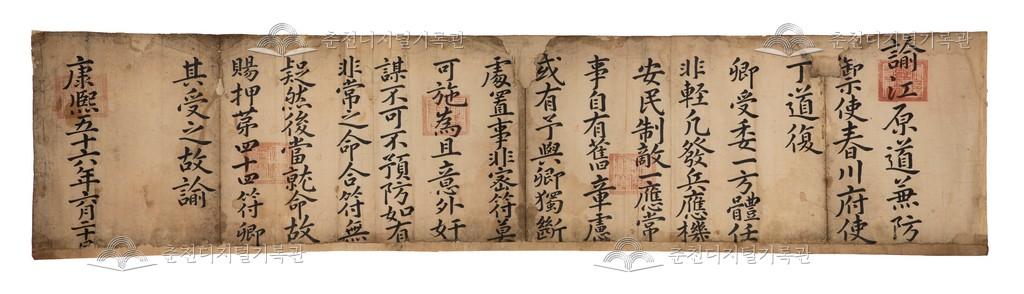 諭江原道兼防
禦使春川府使
丁道復
卿受委一方體任
非輕凡發兵應機
安民制敵一應常
事自有舊章慮
或有予與卿獨斷
處置事非密符莫
可施為且意外奸
謀不可不預防如有
非常之命合符無
疑然後當就命故
賜押第四十四符卿
其受之故諭
康熙五十六年六月二十
춘천디지털기록관
춘천디지털기록관
춘천디지털기록관
춘천디지털기록관